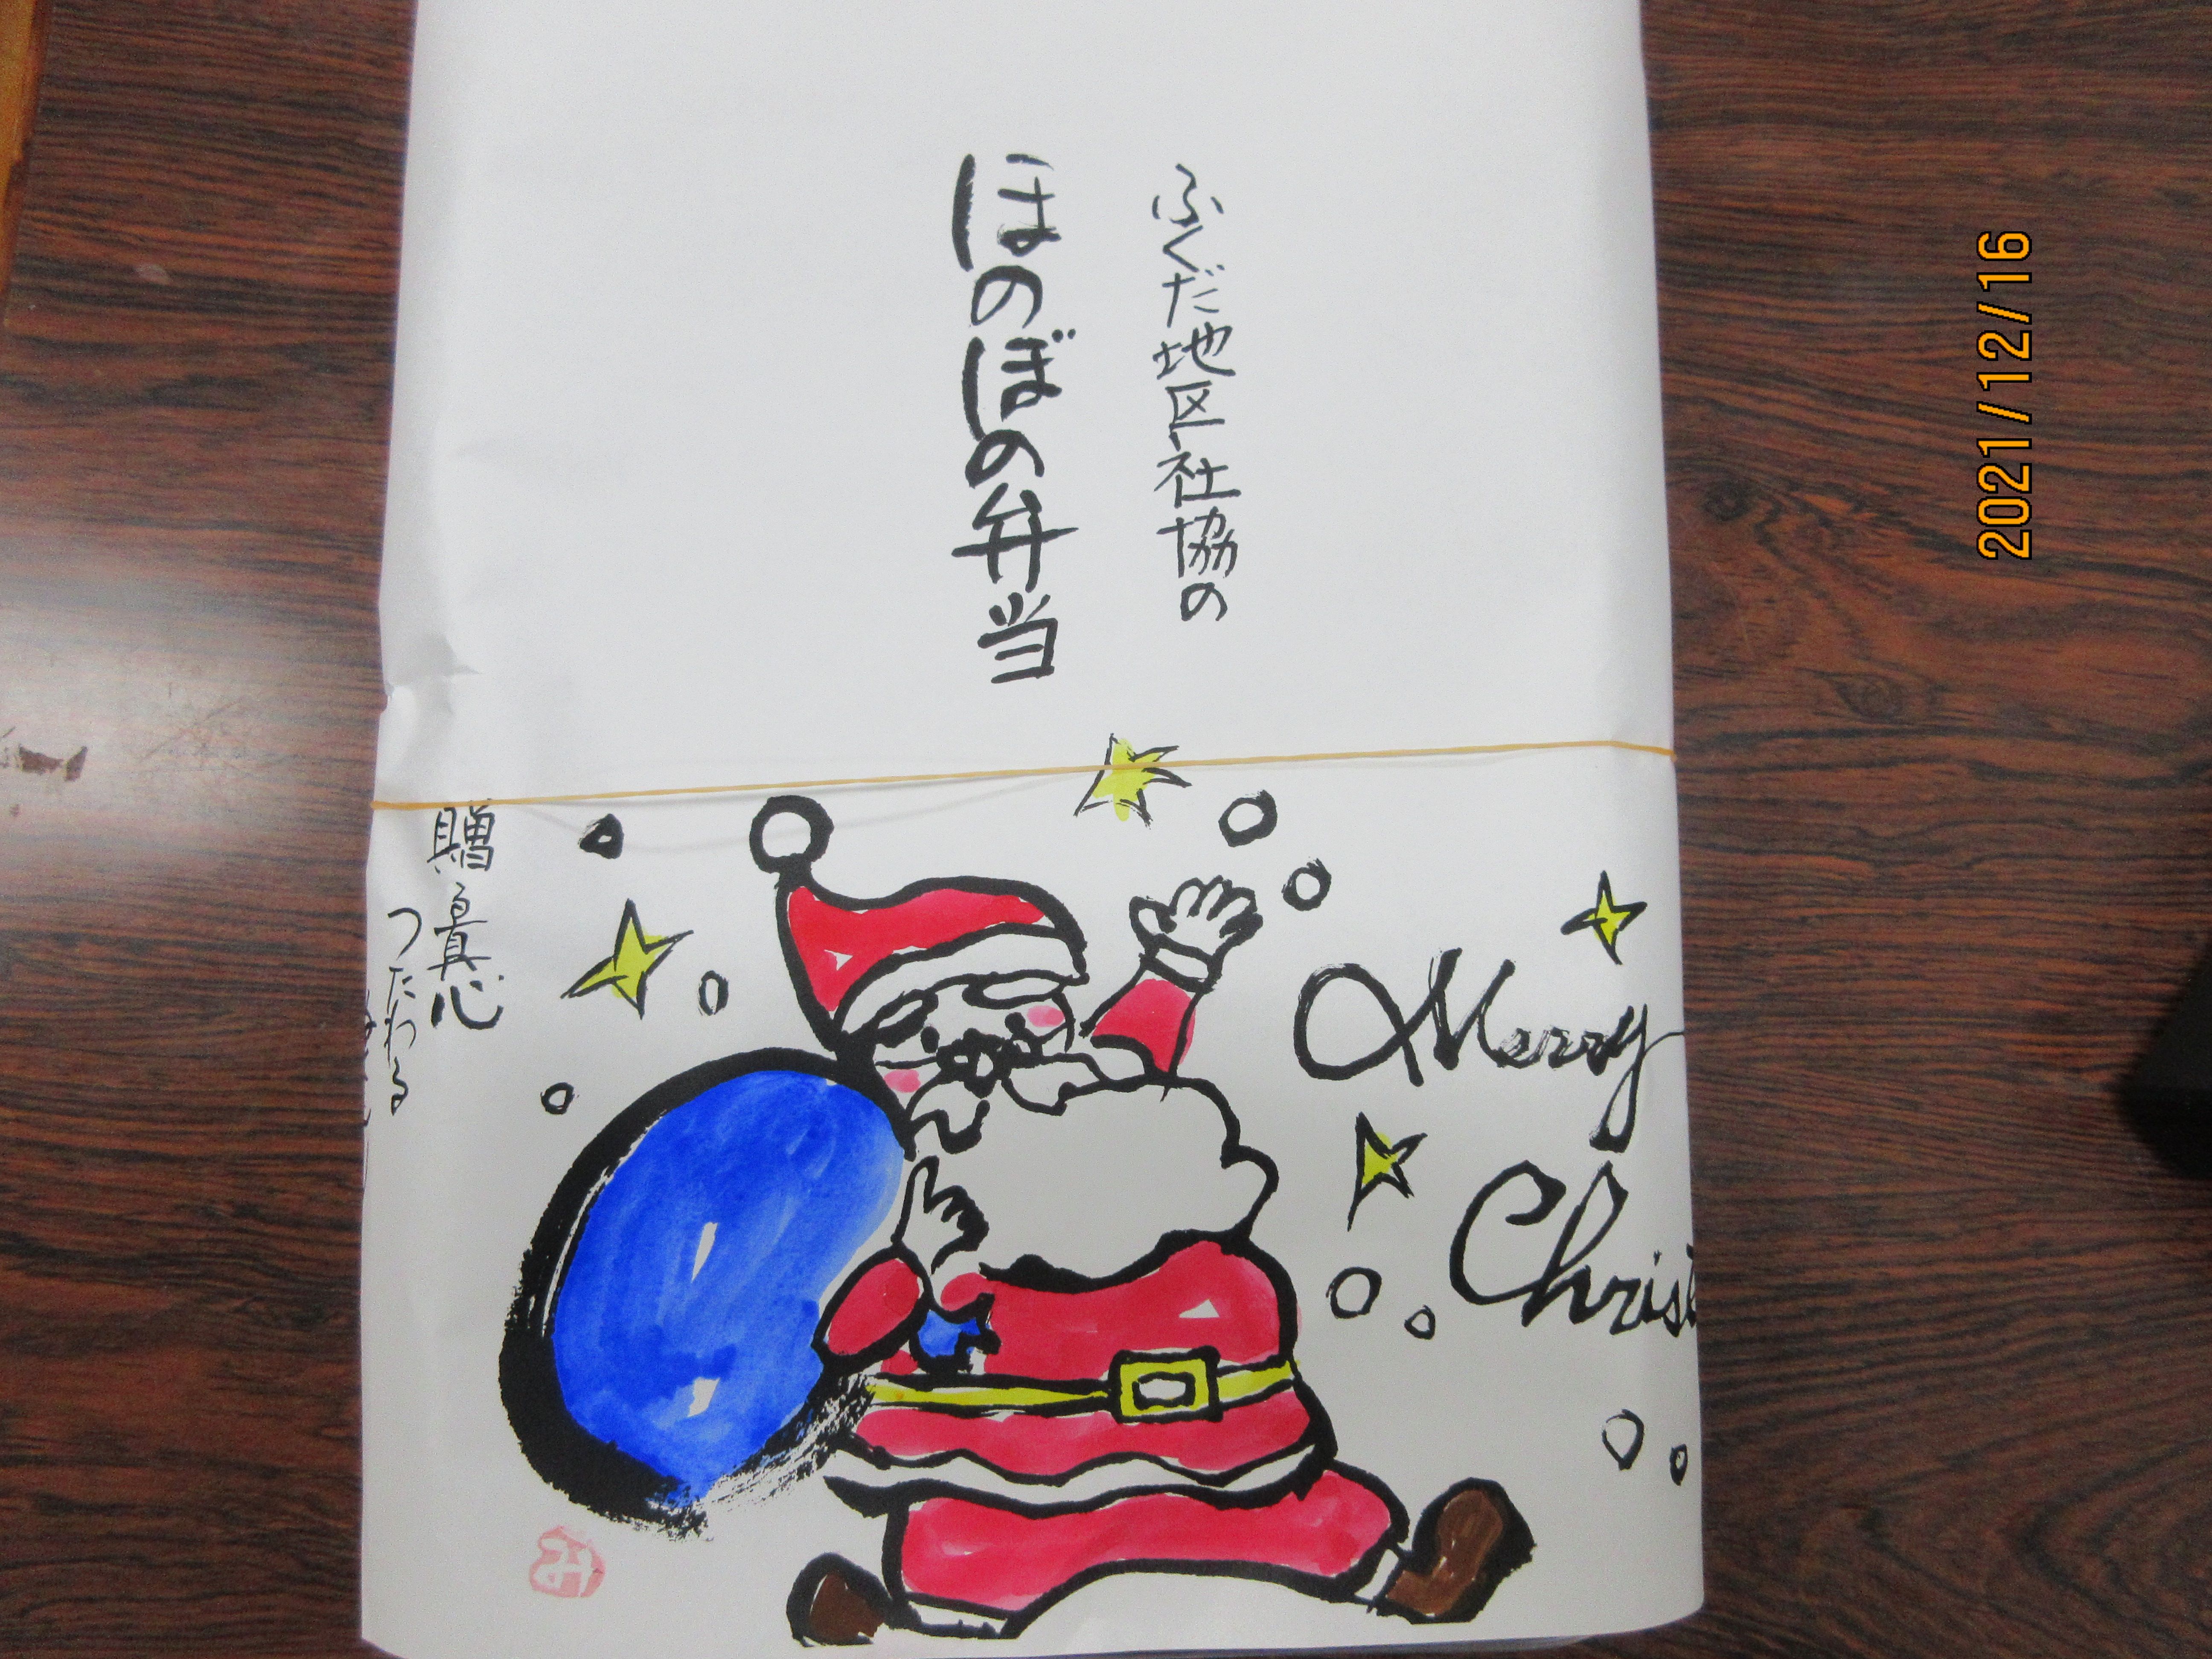 ふくだ地区社協の
ほのぼの弁当
贈る真心
つたわる
Merry
Christ
2021/12/16